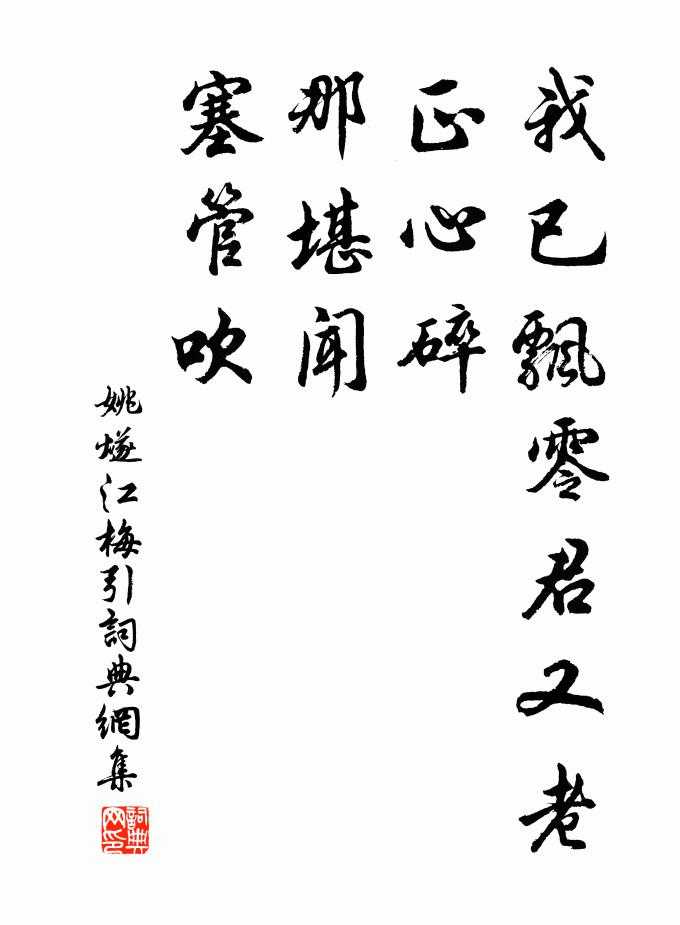 我已飄零君又老
正心碎
那堪聞
塞管吹
姚燧江梅引詞典網集
詞典网印